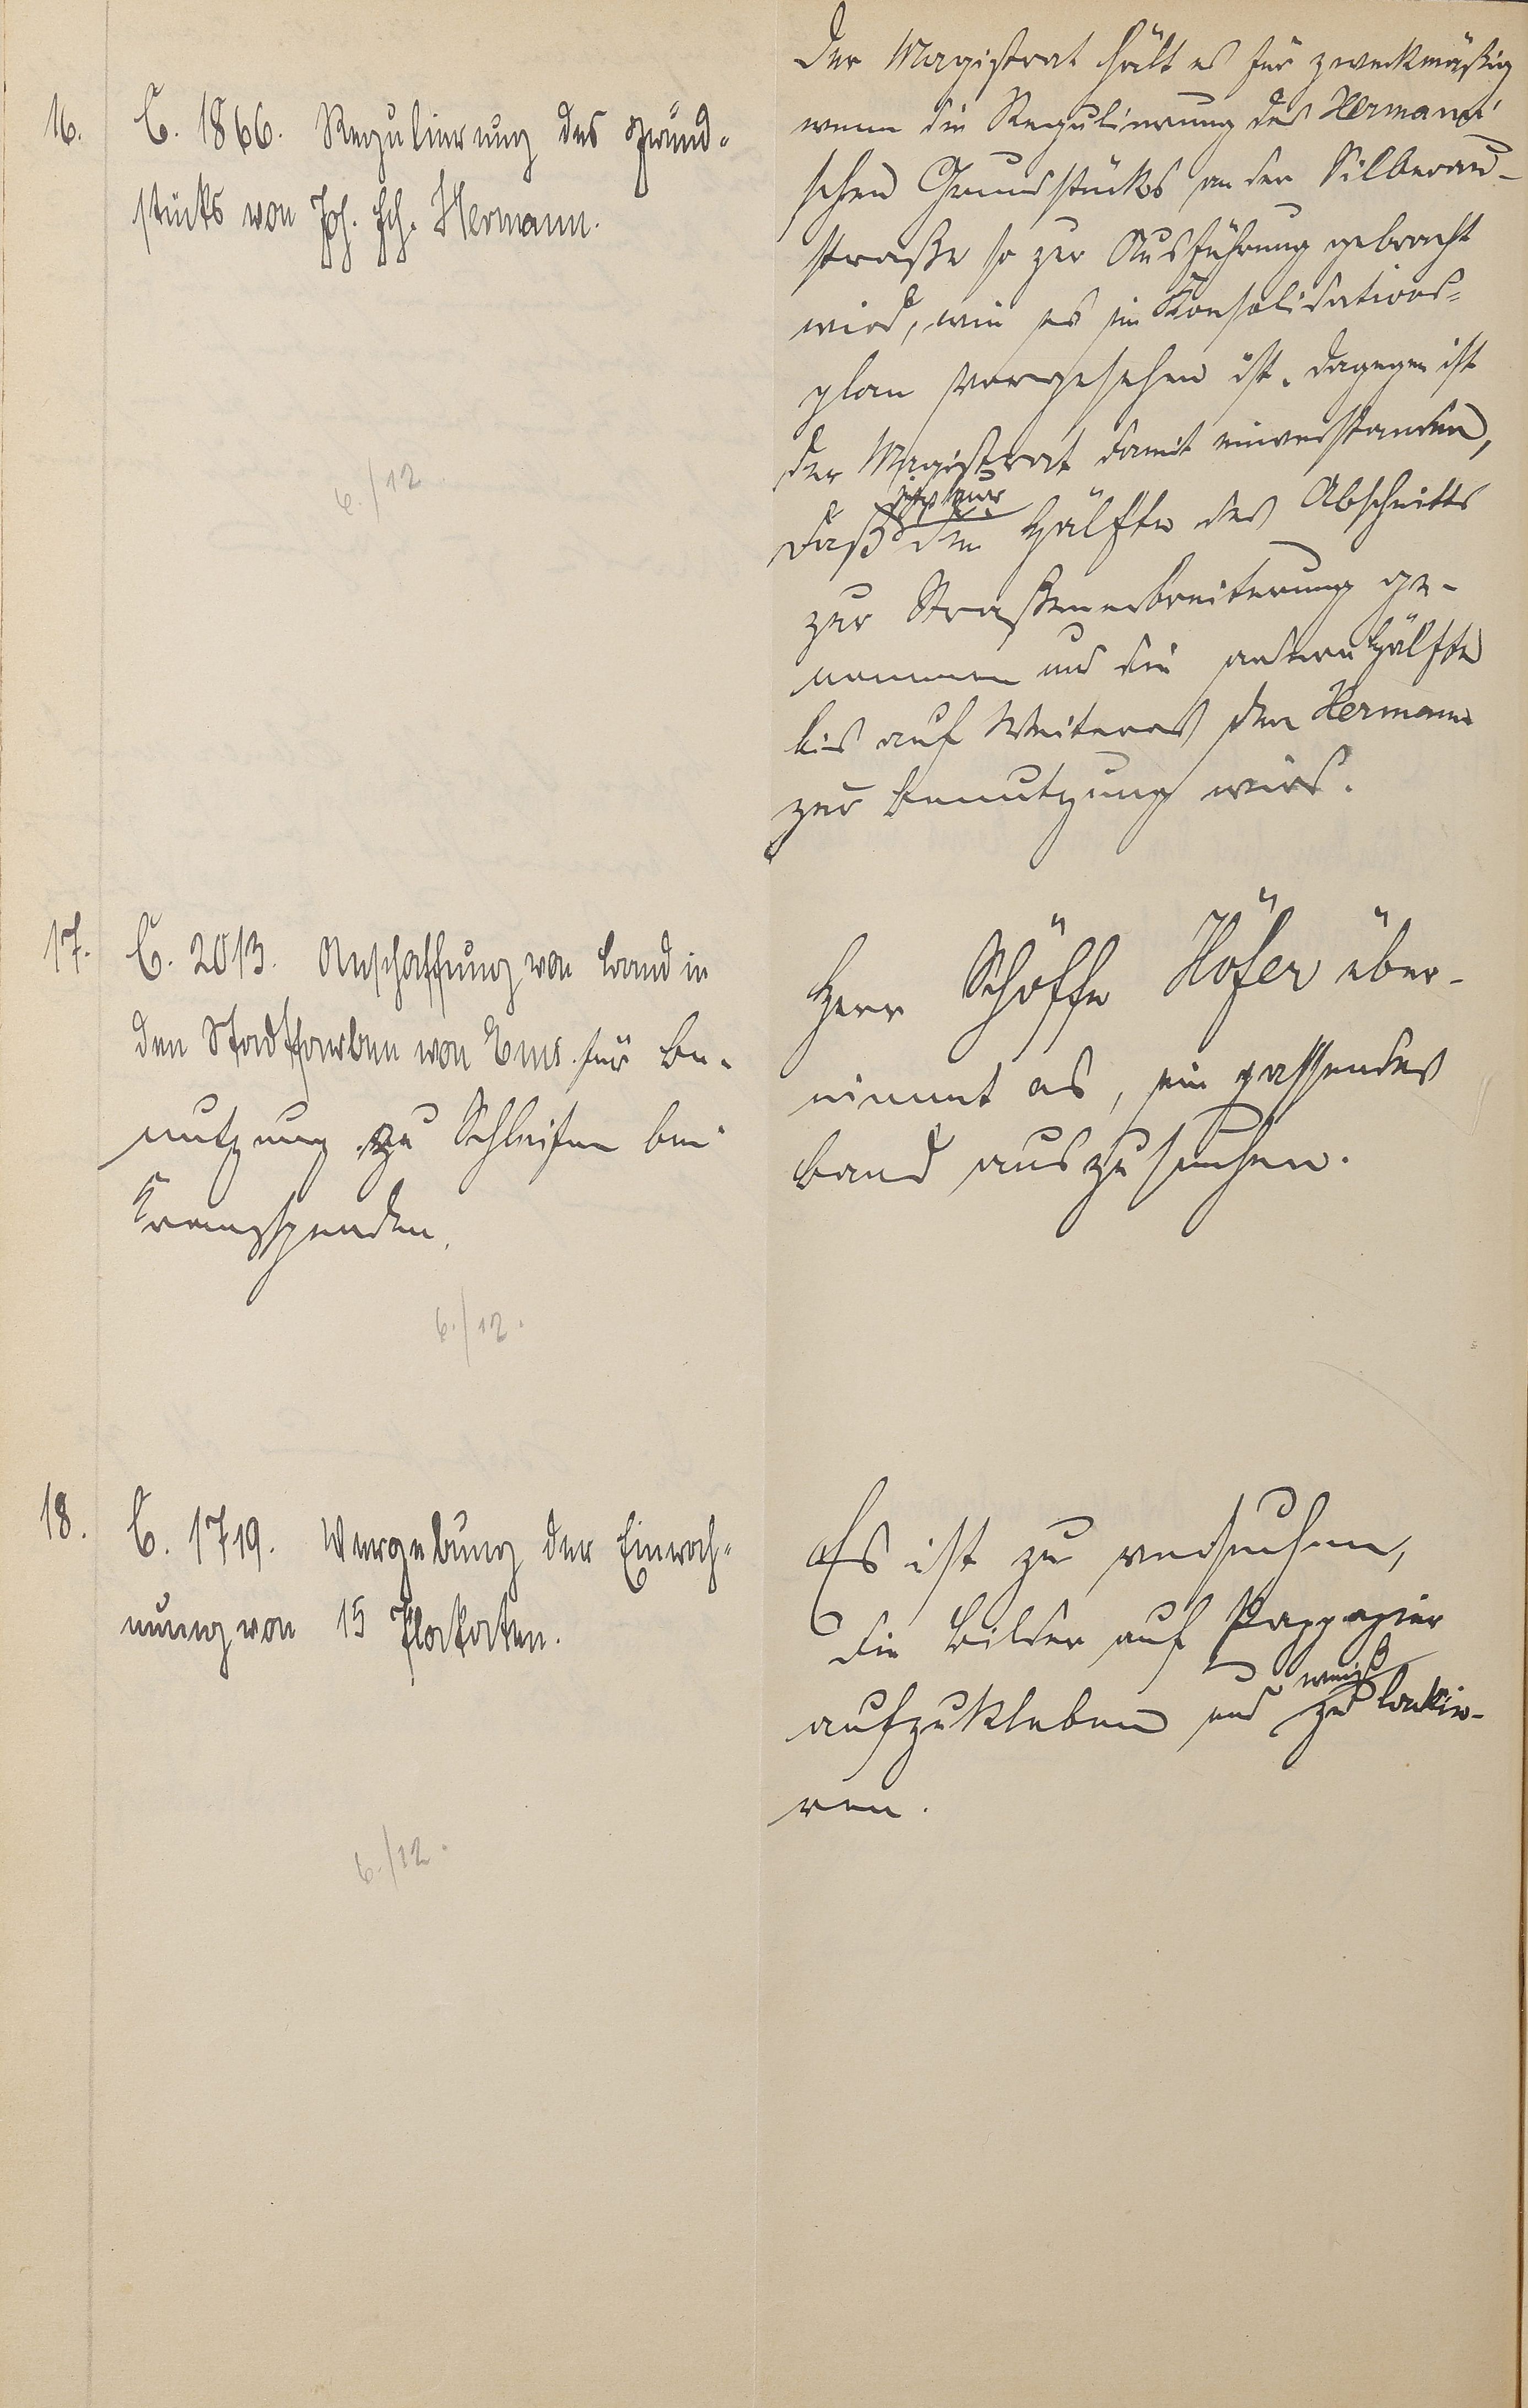 16.
C. 1866. Regulierung des Grund-
stücks von Jos. Hch. Hermann.
6./12.
Der Magistrat hält es für zweckmäßig
wenn die Regulierung des Hermann'
schen Grundstücks an der Silberau-
straße so zur Ausführung gebracht
wird, wie es im Konsolidations-
plan vorgesehen ist. Dagegen ist
der Magistrat damit einverstanden,
daß die Hälfte des Abschnitts
zur Straßenverbreiterung ge-
nommen und die andere Hälfte
bis auf Weiteres dem Hermann
zur Benutzung wird.
17.
C. 2013. Anschaffung von Band in
den Stadtfarben von Ems für Be-
nutzung zu Schleifen bei
Kranzspenden.
6./12.
Herr Schöffe Höfer über-
nimmt es, ein passendes
Band auszusuchen.
18.
C. 1719. Vergebung der Einrah-
mung von 15 Plakaten.
6./12.
Es ist zu versuchen,
die Bilder auf Pappapier
aufzukleben und weiß zu lackie-
ren.